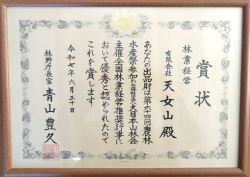 賞状
林業経営
有限会社 天女山殿
あなたの出品財は第六十四回農林
水産祭参加
大日本山林会
主催全国林業経営推奨行事に
おいて優秀と認められたので
これを賞します
令和七年六月三十日
林野庁長官 青山豊久